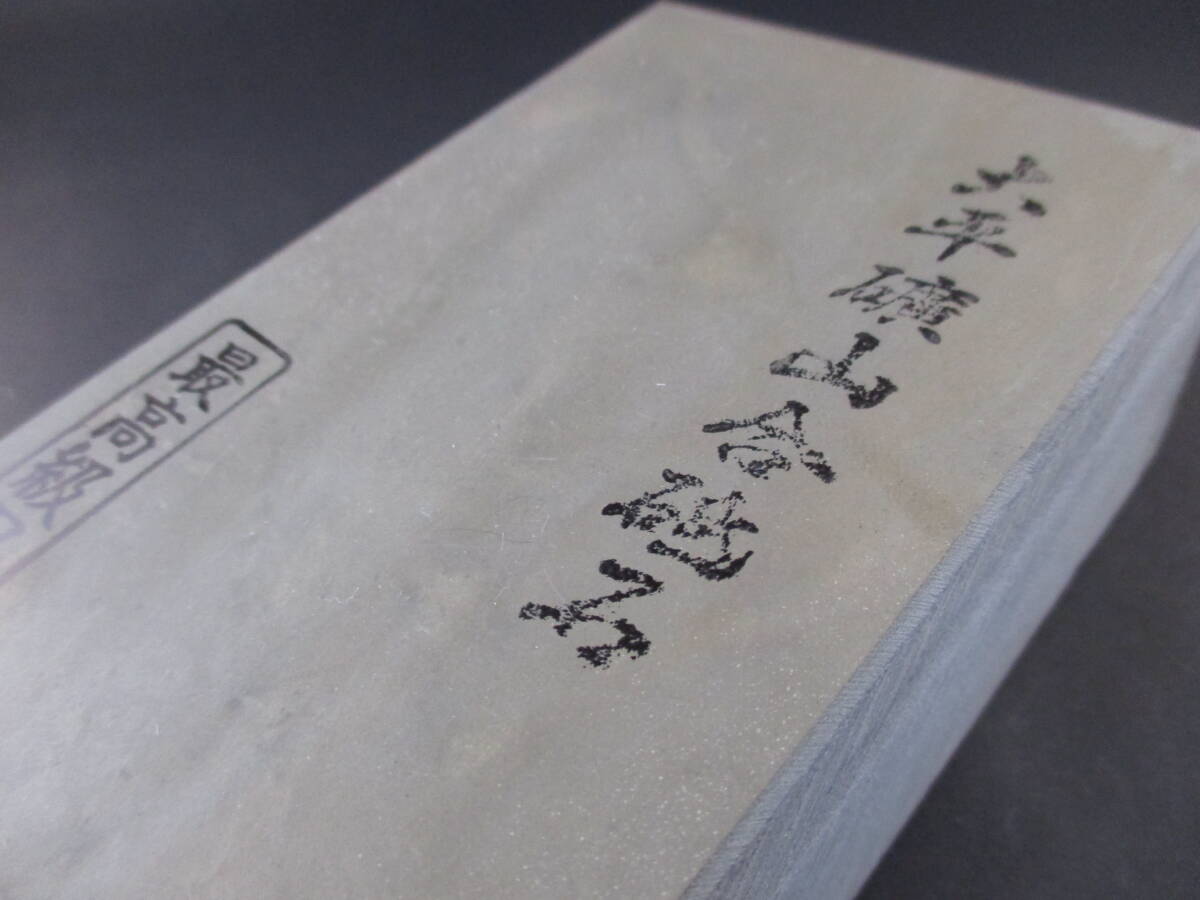 大平礦山合砥石
最高級